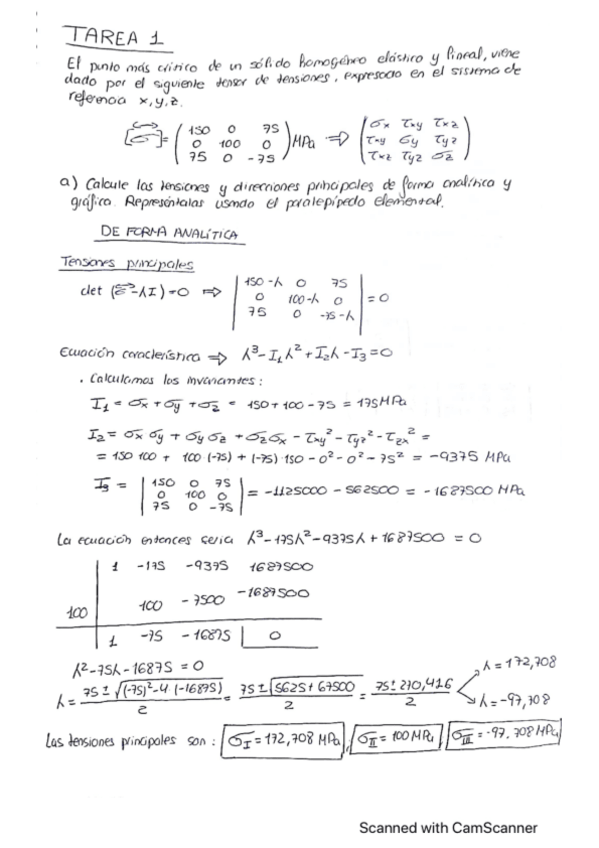 TAREA 1
El punto más crítico de un sólido homogéneo elástico y lineal, viene
dado por el siguiente tensor de tensiones, expresado en el sistema de
referencia x,y,z.
[σ] = (150 0 75; 0 100 0; 75 0 -75) MPa ⇒ (σx τxy τxz; τxy σy τyz; τxz τyz σz)
a) Calcule las tensiones y direcciones principales de forma analítica y
gráfica. Represéntalas usando el paralepípedo elemental.
DE FORMA ANALÍTICA
Tensones principales
det (σ-λI)=0 ⇒ |150-λ 0 75; 0 100-λ 0; 75 0 -75-λ| = 0
Ecuación característica ⇒ λ³-I₁λ²+I₂λ-I₃=0
· Calculamos los invariantes:
I₁ = σx + σy + σz = 150+100-75 = 175MPa
I₂ = σx σy + σy σz + σz σx - τxy² - τyz² - τzx² =
= 150 100 + 100 (-75) + (-75) 150 - 0² - 0² - 75² = -9375 MPa
I₃ = |150 0 75; 0 100 0; 75 0 -75| = -1125000 - 562500 = -1687500 MPa
La ecuación entonces sería λ³-175λ²-9375λ+1687500 = 0
1 -175 -9375 1687500
100 100 -7500 -1687500
1 -75 -16875 0
λ²-75λ-16875 = 0
λ = (75 ± √((-75)²-4·(-16875)))/2 = (75 ± √(5625+67500))/2 = (75 ± 270,416)/2
λ = 172,708
λ = -97,708
Las tensiones principales son: σI = 172,708 MPa, σII = 100 MPa, σIII = -97,708 MPa
Scanned with CamScanner